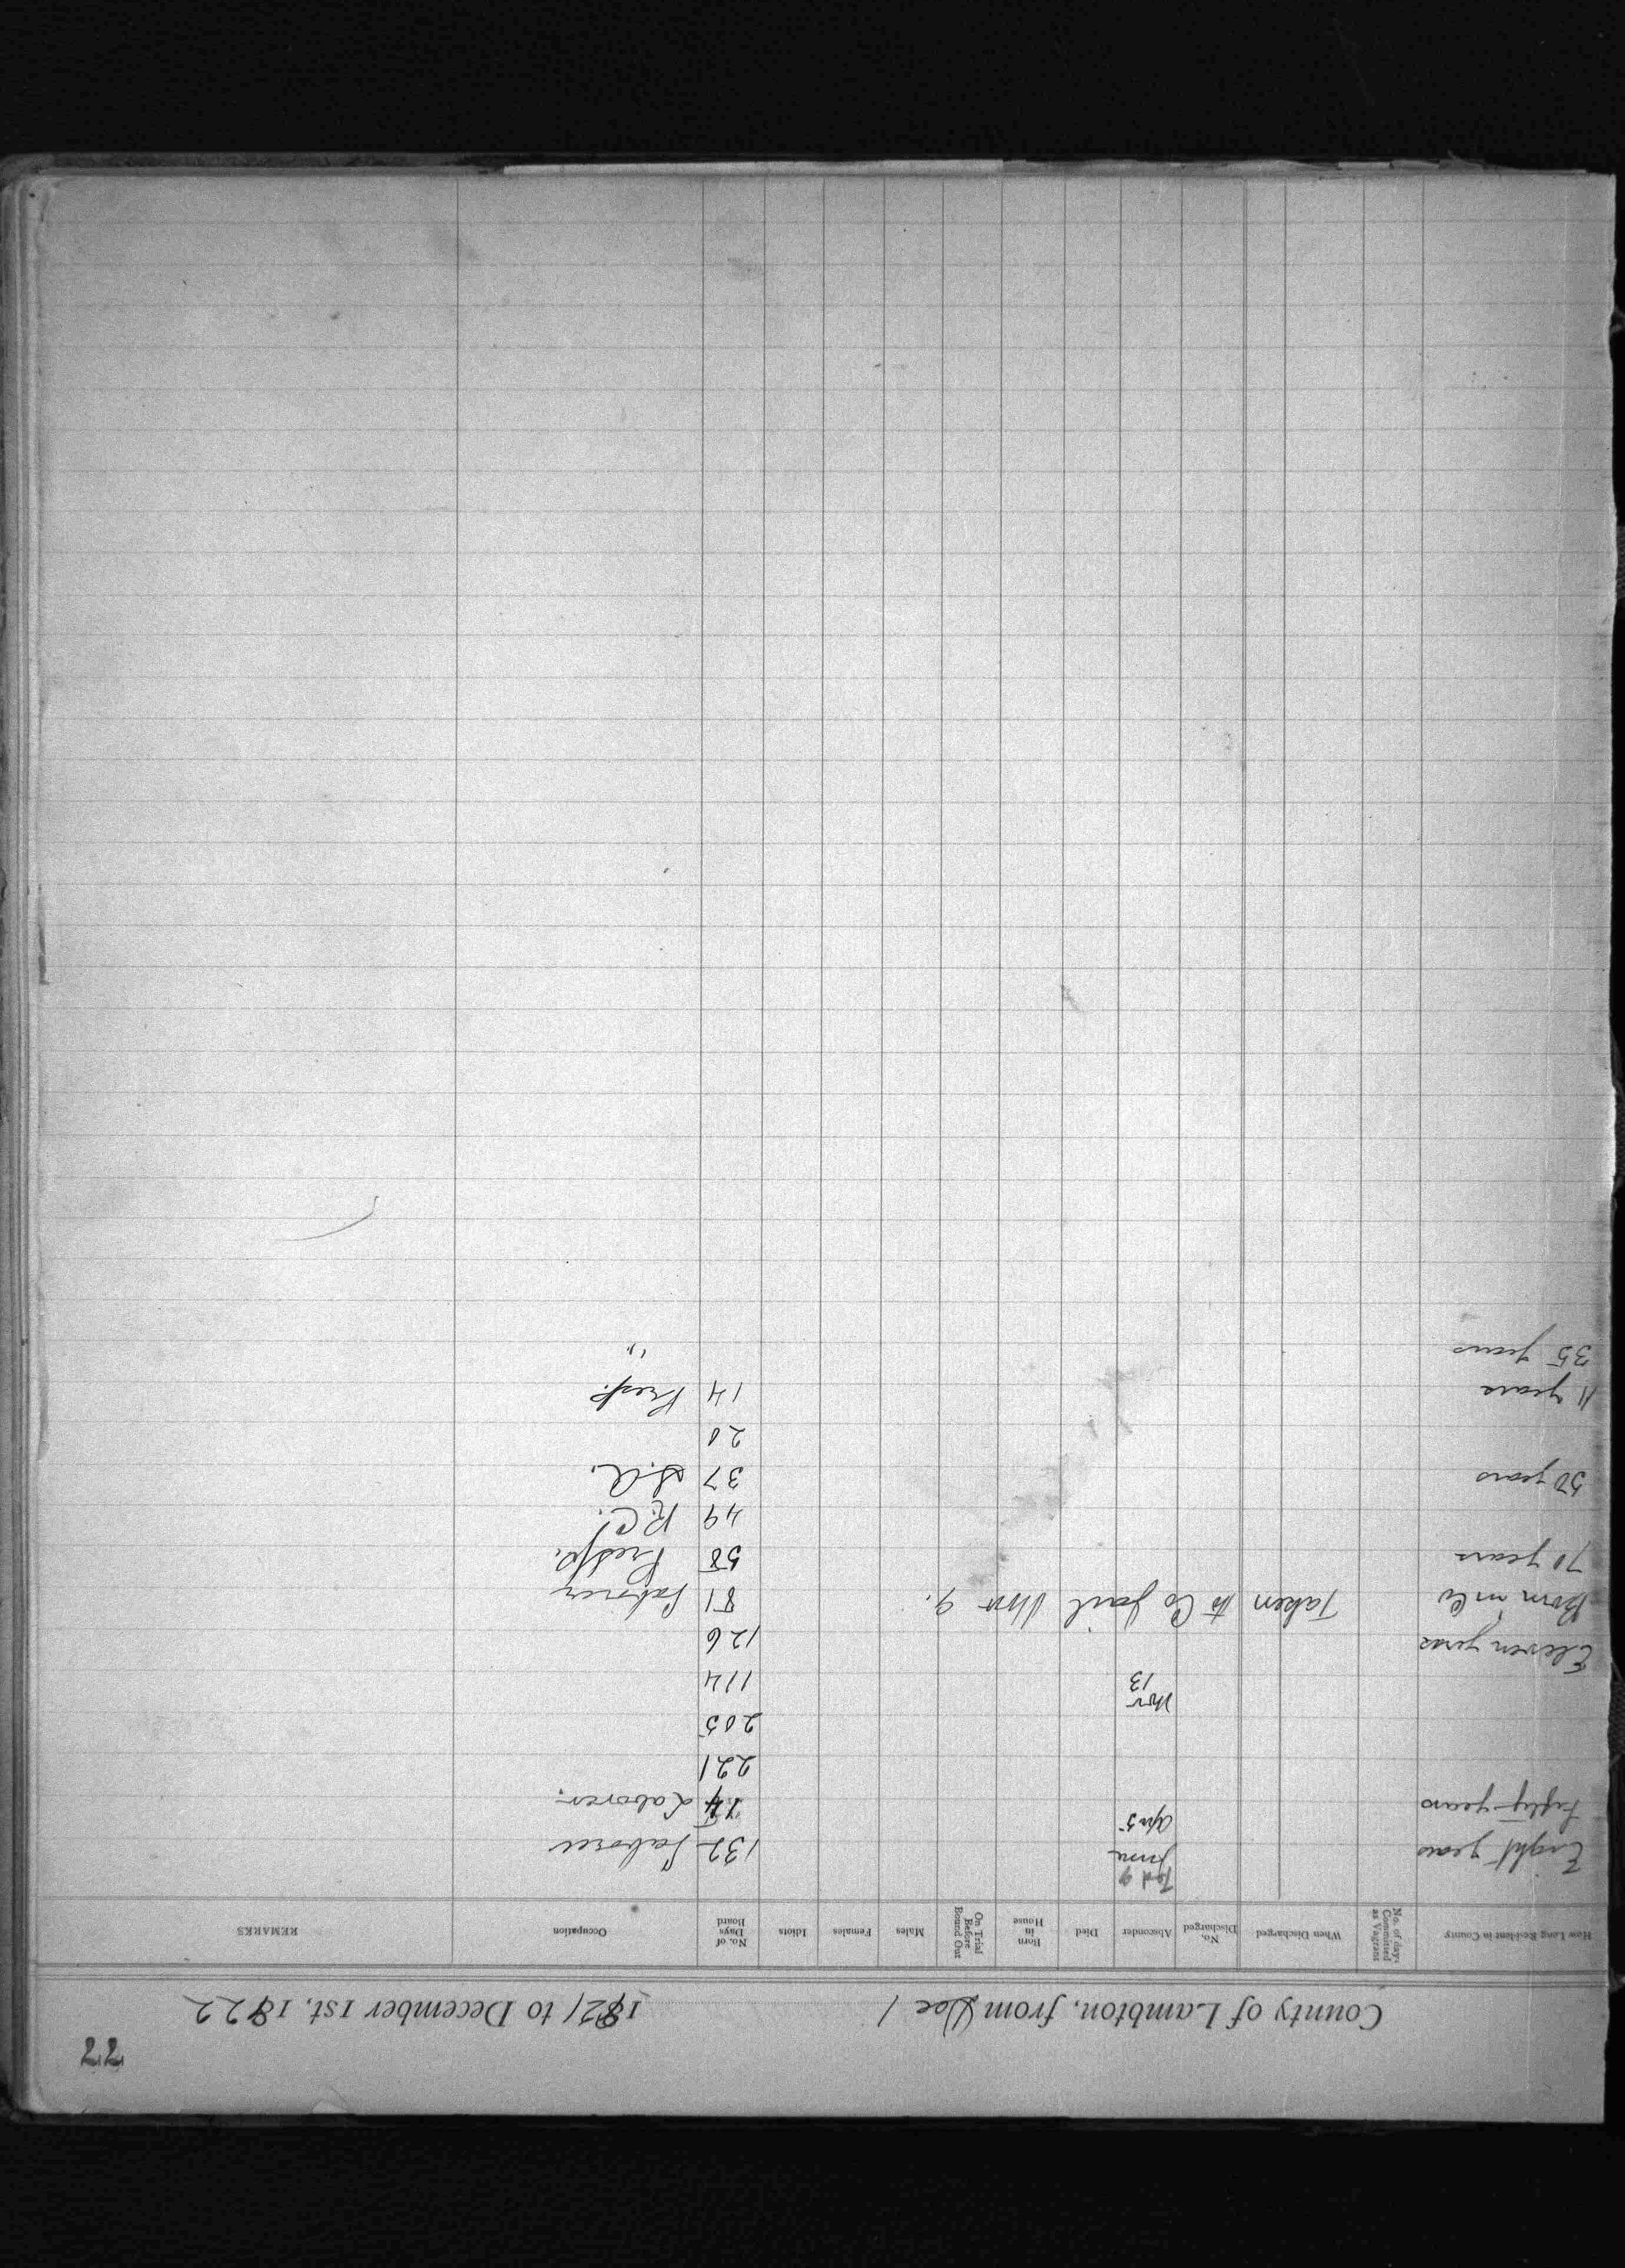 77
County of Lambton, from Dec 1 1921 to December 1st, 1922
How Long Resident in County No. of days Committed as Vagrant When Discharged No. Discharged Absconder Died Born in House On Trial Before Bound Out Males Females Idiots No. of Days Board Occupation REMARKS
Eight years June 132 Laborer
Fifty years Apr 5 14 Laborer.
221
205
Nov 13 114
Eleven years 126
Born in Co Taken to Co Jail Nov 9. 81 Laborer
70 years 58 Presby.
49 R.C.
50 years 37 S.A.
20
11 years 14 Presb.
35 years "